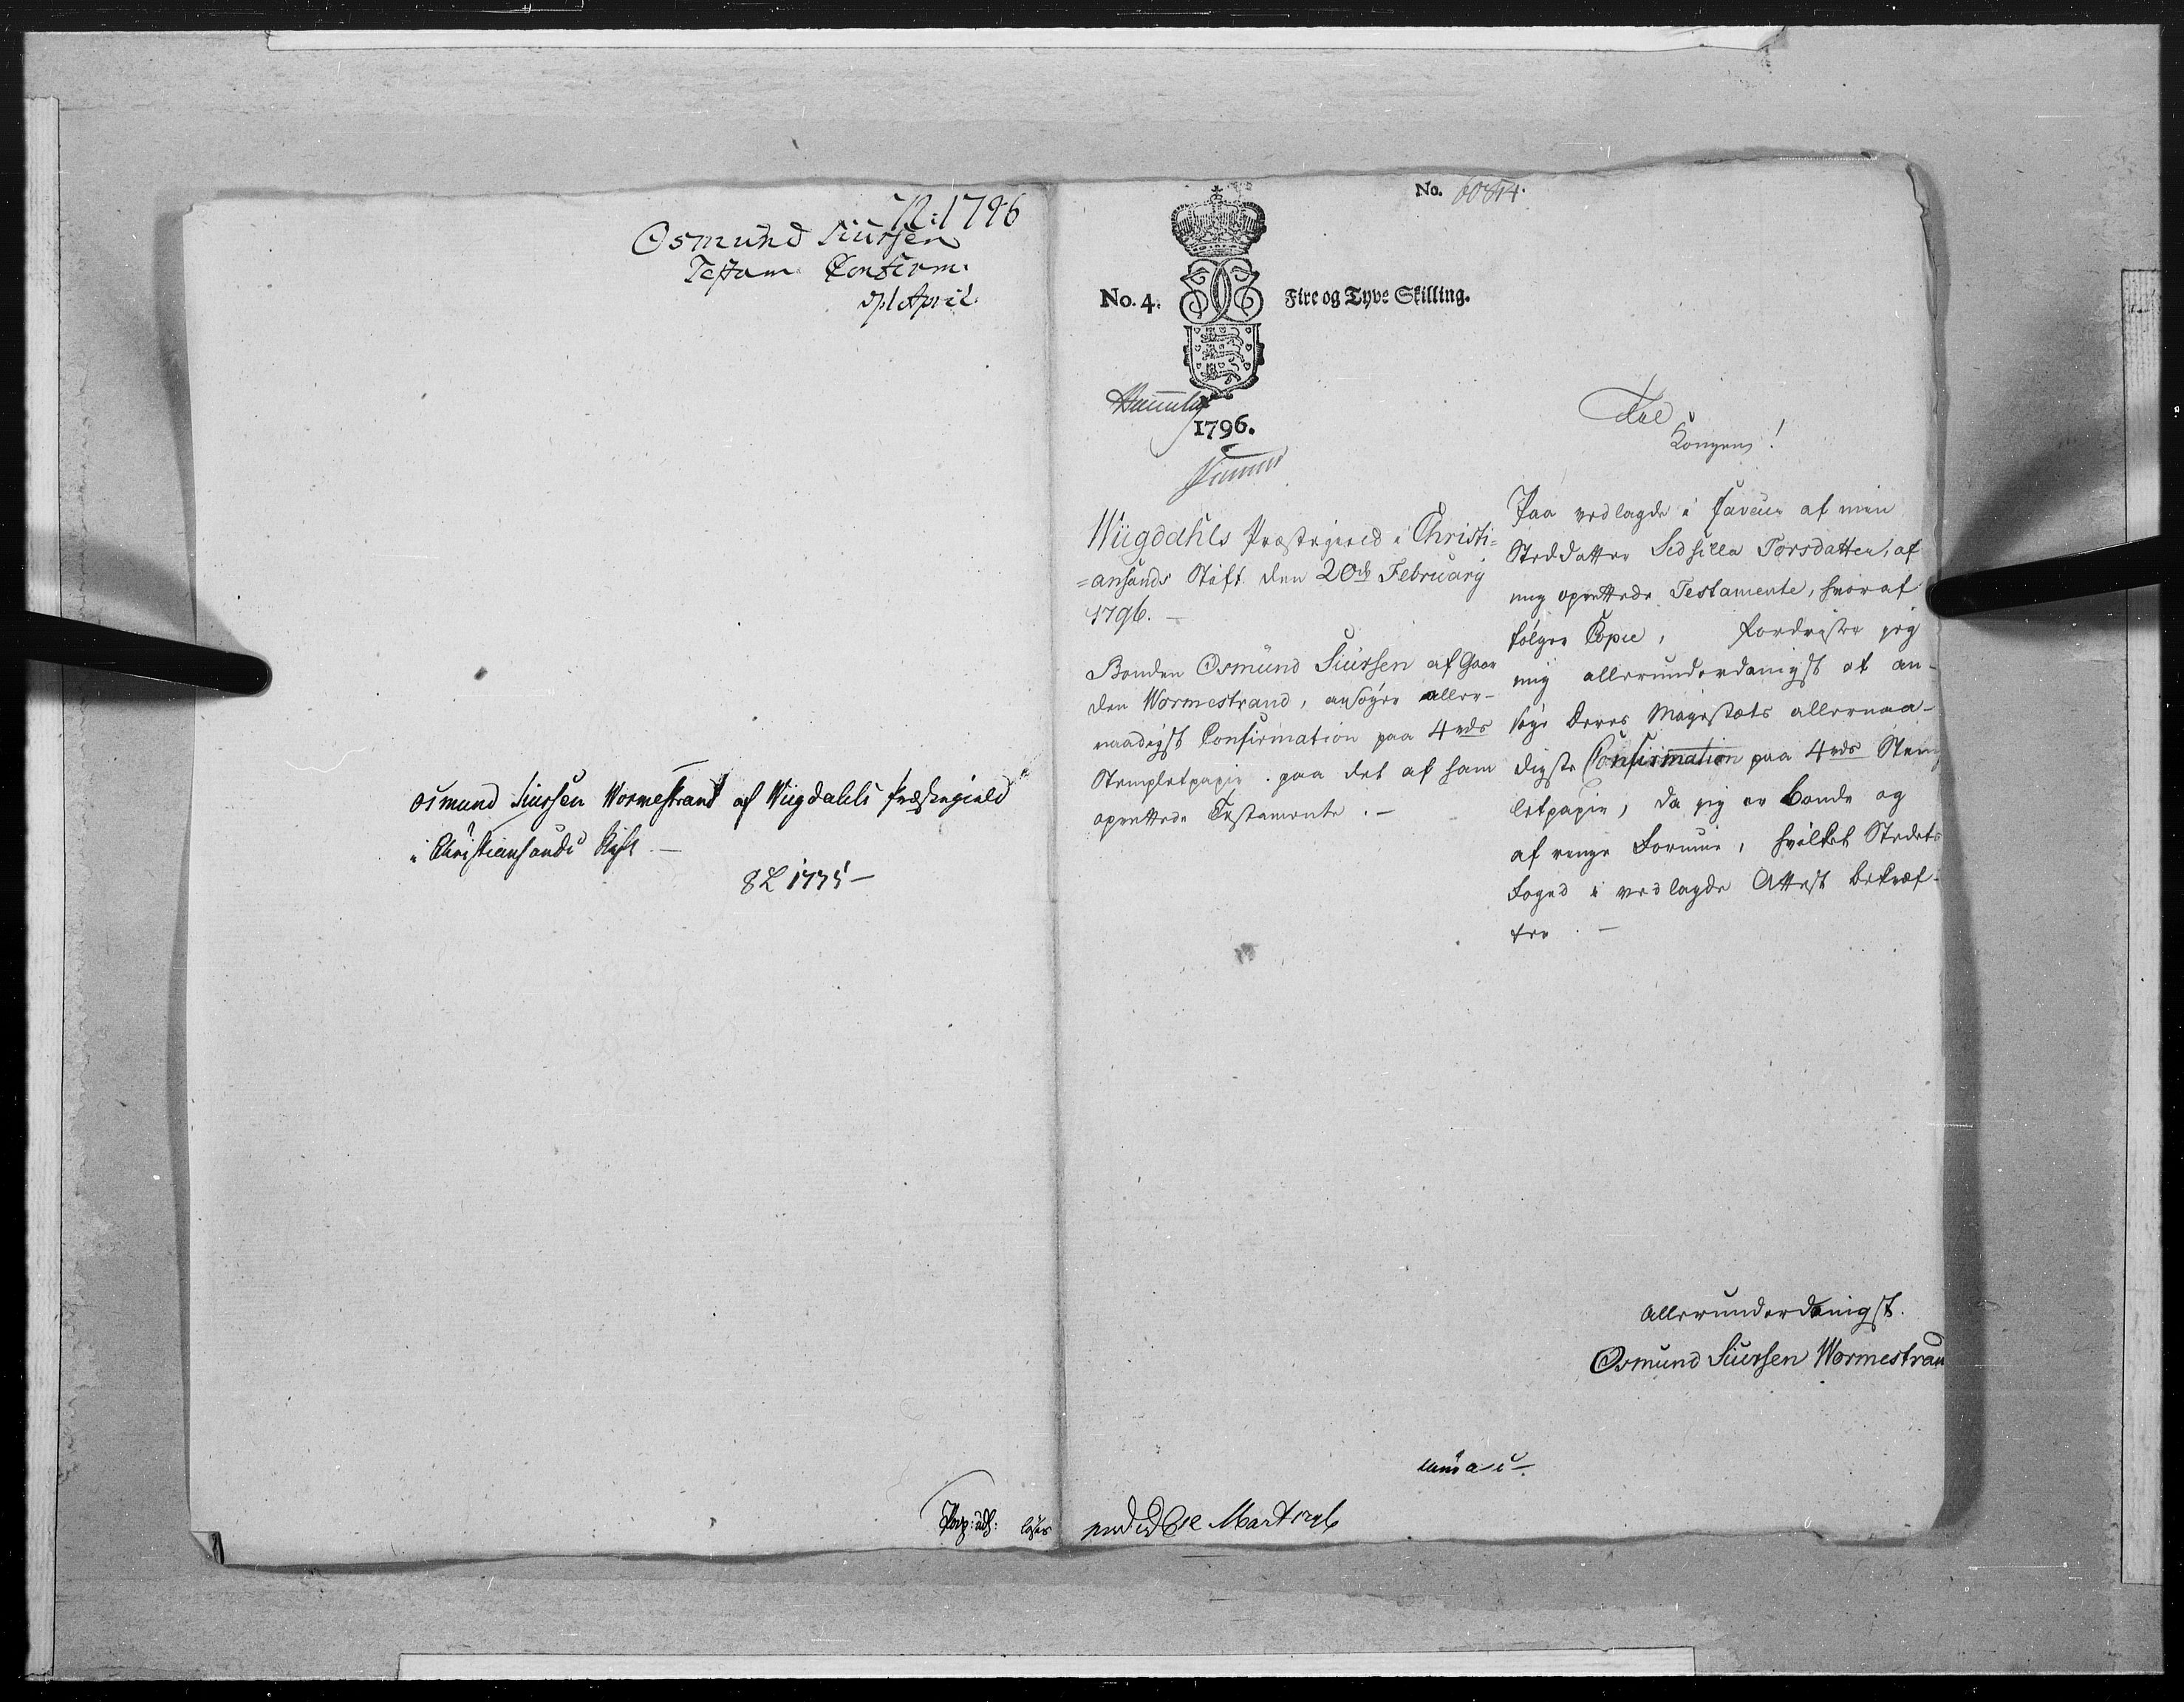 N: 1796
Osmund Siursen
Testam Confirm.
d 1 April.
Osmund Siursen Wormestrand af Wiigdahls Præstegield
i Christiansands Stift
8 L 1775
No. 60844.
No. 4. Fire og Tyve Skilling.
1796.
Wiigdahls Præstegield i Christi=
=ansands Stift den 20de Februarij
1796. —
Bonden Osmund Siursen af Gaar
den Wormestrand, ansøger aller-
naadigst Confirmation paa 4rds
Stempletpapir paa det af ham
oprettede Testamente. —
Til
Kongen!
Paa vedlagde i faveur af min
Steddatter Sidsilla Torsdatter, af
mig oprettede Testamente, hvoraf
følger Copie, fordrister jeg
mig allerunderdanigst at an-
søge Deres Majestæts allernaa-
digste Confirmation paa 4rds Stemp
letpapir, da jeg er bonde og
af ringe Formue, hvilket Stedets
Foged i vedlagde Attest bekræf-
ter. —
Allerunderdanigst.
Osmund Siursen Wormestran
Mart 1796